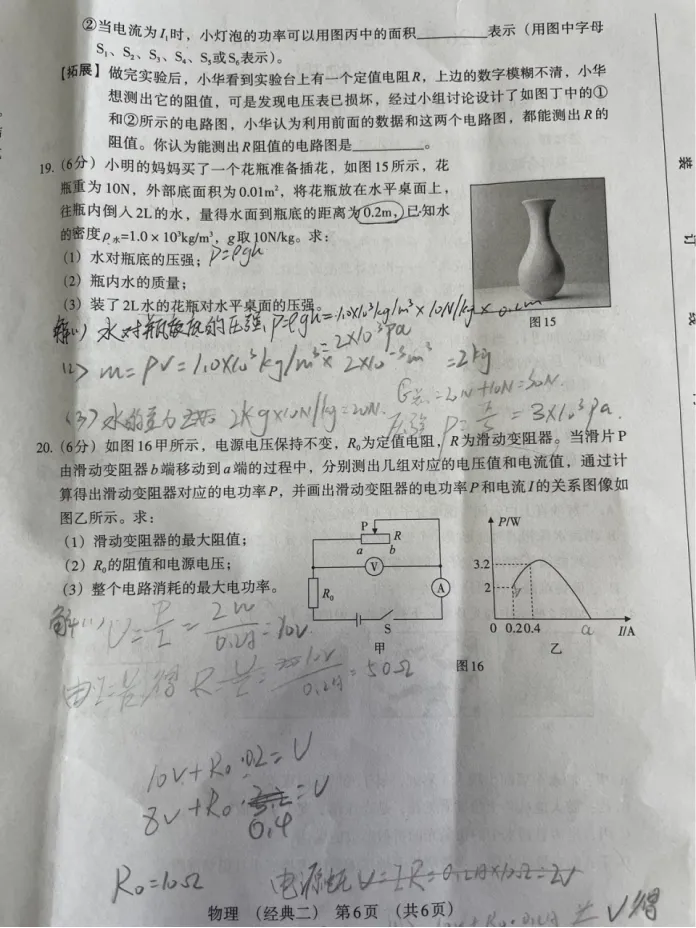 ②当电流为I₁时,小灯泡的功率可以用图丙中的面积________表示(用图中字母
S₁、S₂、S₃、S₄、S₅或S₆表示)。
【拓展】做完实验后,小华看到实验台上有一个定值电阻R,上边的数字模糊不清,小华
想测出它的阻值,可是发现电压表已损坏,经过小组讨论设计了如图丁中的①
和②所示的电路图,小华认为利用前面的数据和这两个电路图,都能测出R的
阻值。你认为能测出R阻值的电路图是________。
19.(6分)小明的妈妈买了一个花瓶准备插花,如图15所示,花
瓶重为10N,外部底面积为0.01m²,将花瓶放在水平桌面上,
往瓶内倒入2L的水,量得水面到瓶底的距离为0.2m,已知水
的密度ρ水=1.0×10³kg/m³,g取10N/kg。求:
(1)水对瓶底的压强;P=ρgh
(2)瓶内水的质量;
(3)装了2L水的花瓶对水平桌面的压强。
图15
解(1)水对瓶底的压强P=ρgh=1.0×10³kg/m³×10N/kg×0.2m
=2×10³pa
(2)m=ρV=1.0×10³kg/m³×2×10⁻³m³=2kg
G总=20N+10N=30N.
(3)水的重力 2kg×10N/kg=20N. 压强P=F/S=3×10³pa.
20.(6分)如图16甲所示,电源电压保持不变,R₀为定值电阻,R为滑动变阻器。当滑片P
由滑动变阻器b端移动到a端的过程中,分别测出几组对应的电压值和电流值,通过计
算得出滑动变阻器对应的电功率P,并画出滑动变阻器的电功率P和电流I的关系图像如
图乙所示。求:
(1)滑动变阻器的最大阻值;
(2)R₀的阻值和电源电压;
(3)整个电路消耗的最大电功率。
P
R
a b
V
R₀
A
S
甲
P/W
3.2
2
0 0.2 0.4 a I/A
乙
图16
解(1)U=P/I=2W/0.2A=10V.
由I=U/R得R=U/I=10V/0.2A=50Ω
10V+R₀·0.2=U
8V+R₀·0.4=U
R₀=10Ω
电源电压U=IR=0.2A×10Ω=2V
物理(经典二) 第6页(共6页)
10V+R₀·0.2A=U得